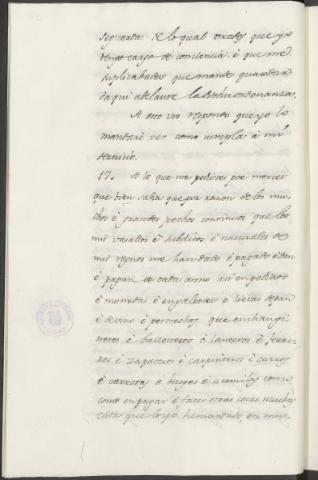 segunda. de lo qual vredes que yo
tengo cargo de conciencia é que me
suplicabades que mande guardar
da qui adelante la dicha ordenanza.
A esto vos respondo que yo lo
mandaré ver como cumpla á mi
servicio.
17. A lo que me pedistes por merced
que bien sabia que por razon de los mu-
chos é grandes pechos continuos que los
mis vasallos é subditos é naturales de
mis regnos me han dado é pagado é dan
é pagan de cada anno asi en pedidos
é monedas é en galeotes é lievas de pan
é de vino é pertrechos que embian gi
neteros é ballesteros é lanceros é ferre-
ros é zapateros é carpinteros é carros
é carretas é bueyes é acemilas como
como en pagar é facer otras cosas muchas
cada que lo yo he mandado, en mu-